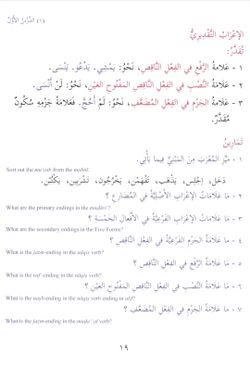 (١) الدَّرْسُ الأَوَّلُ
الإِعْرَابُ التَّقْدِيرِيُّ
تُقَدَّرُ:
١ - عَلامَةُ الرَّفْعِ فِي الفِعْلِ النَّاقِصِ، نَحْوُ: يَمْشِي. يَدْعُو. يَنْسَى.
٢ - عَلامَةُ النَّصْبِ فِي الفِعْلِ النَّاقِصِ المَفْتُوحِ العَيْنِ، نَحْوُ: لَنْ أَنْسَى.
٣ - عَلامَةُ الجَزْمِ فِي الفِعْلِ المُضَعَّفِ، نَحْوُ: لَمْ أَحُجَّ. فَعَلامَةُ جَزْمِهِ سُكُونٌ
مُقَدَّرٌ.
تَمَارِينُ
١ - مَيِّزِ المُعْرَبَ مِنَ المَبْنِيِّ فِيمَا يَأْتِي.
Sort out the mu'rab from the mabnî.
دَخَلَ، اِجْلِسْ، يَذْهَبُ، تَفْهَمْنَ، يَخْرُجُونَ، تَشْرَبِينَ، يَكْتُبْنَ.
٢ - مَا عَلامَاتُ الإِعْرَابِ الأَصْلِيَّةُ فِي المُضَارِعِ ؟
What are the primary endings in the mudâri'?
٣ - مَا عَلامَاتُ الإِعْرَابِ الفَرْعِيَّةُ فِي الأَفْعَالِ الخَمْسَةِ ؟
What are the secondary endings in the Five Forms?
٤ - مَا عَلامَةُ الجَزْمِ الفَرْعِيَّةُ فِي الفِعْلِ النَّاقِصِ ؟
What is the jazm-ending in the nâqis verb?
٥ - مَا عَلامَةُ الرَّفْعِ فِي الفِعْلِ النَّاقِصِ ؟
What is the raf'-ending in the nâqis verb?
٦ - مَا عَلامَةُ النَّصْبِ فِي الفِعْلِ النَّاقِصِ المَفْتُوحِ العَيْنِ ؟
What is the nasb-ending in the nâqis verb ending in alif?
٧ - مَا عَلامَةُ الجَزْمِ فِي الفِعْلِ المُضَعَّفِ ؟
What is the jazm-ending in the muda''af verb?
١٩